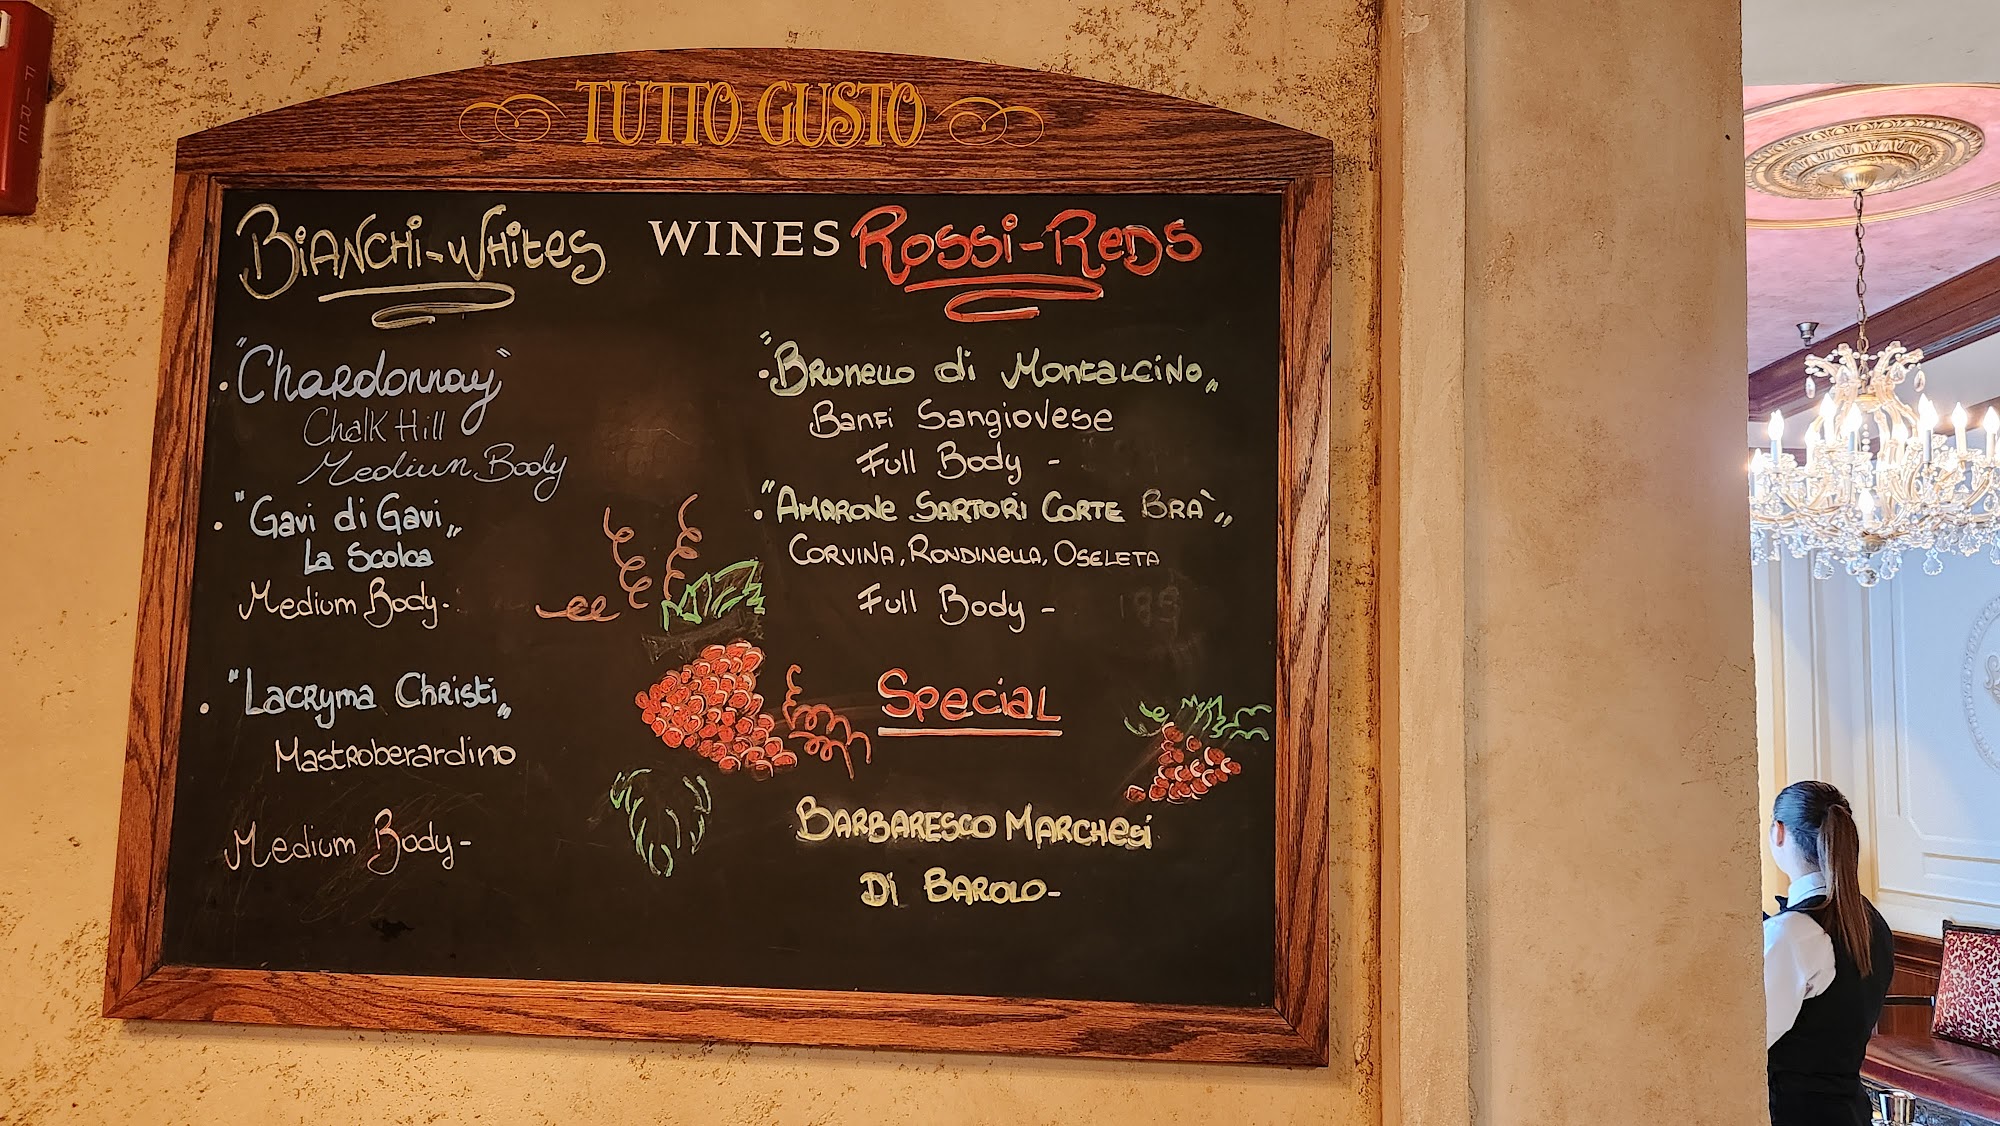 FIRE
TUTTO GUSTO
BiANCHi-WHites
WINES
Rossi-Reds
"Chardonnay"
Chalk Hill
Medium Body
"Gavi di Gavi„
La Scolca
Medium Body-
"Lacryma Christi„
Mastroberardino
Medium Body-
"Brunello di Montalcino„
Banfi Sangiovese
Full Body -
"AMARONE SARTORi CORTE BRÀ„
CORVINA, RONDINELLA, OSELETA
Full Body -
Special
BARBARESCO MARCHesi
Di BAROLO-